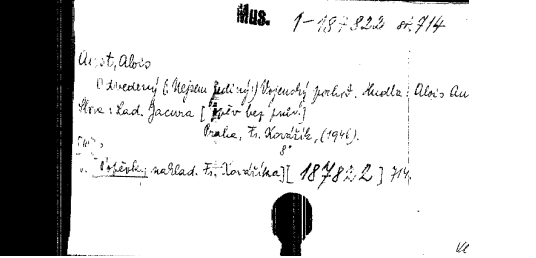 Mus. 1-187822 sv. 714
Aust, Alois
Odvedený (: Nejsem jediný:) Vojenský pochod. Hudba: Alois Au
Slova: Lad. Jacura [Zpěv bez prův.]
Praha, Fr. Kovářík, (1946).
8°
[Popěvky, náklad. Fr. Kováříka] [187822] 714